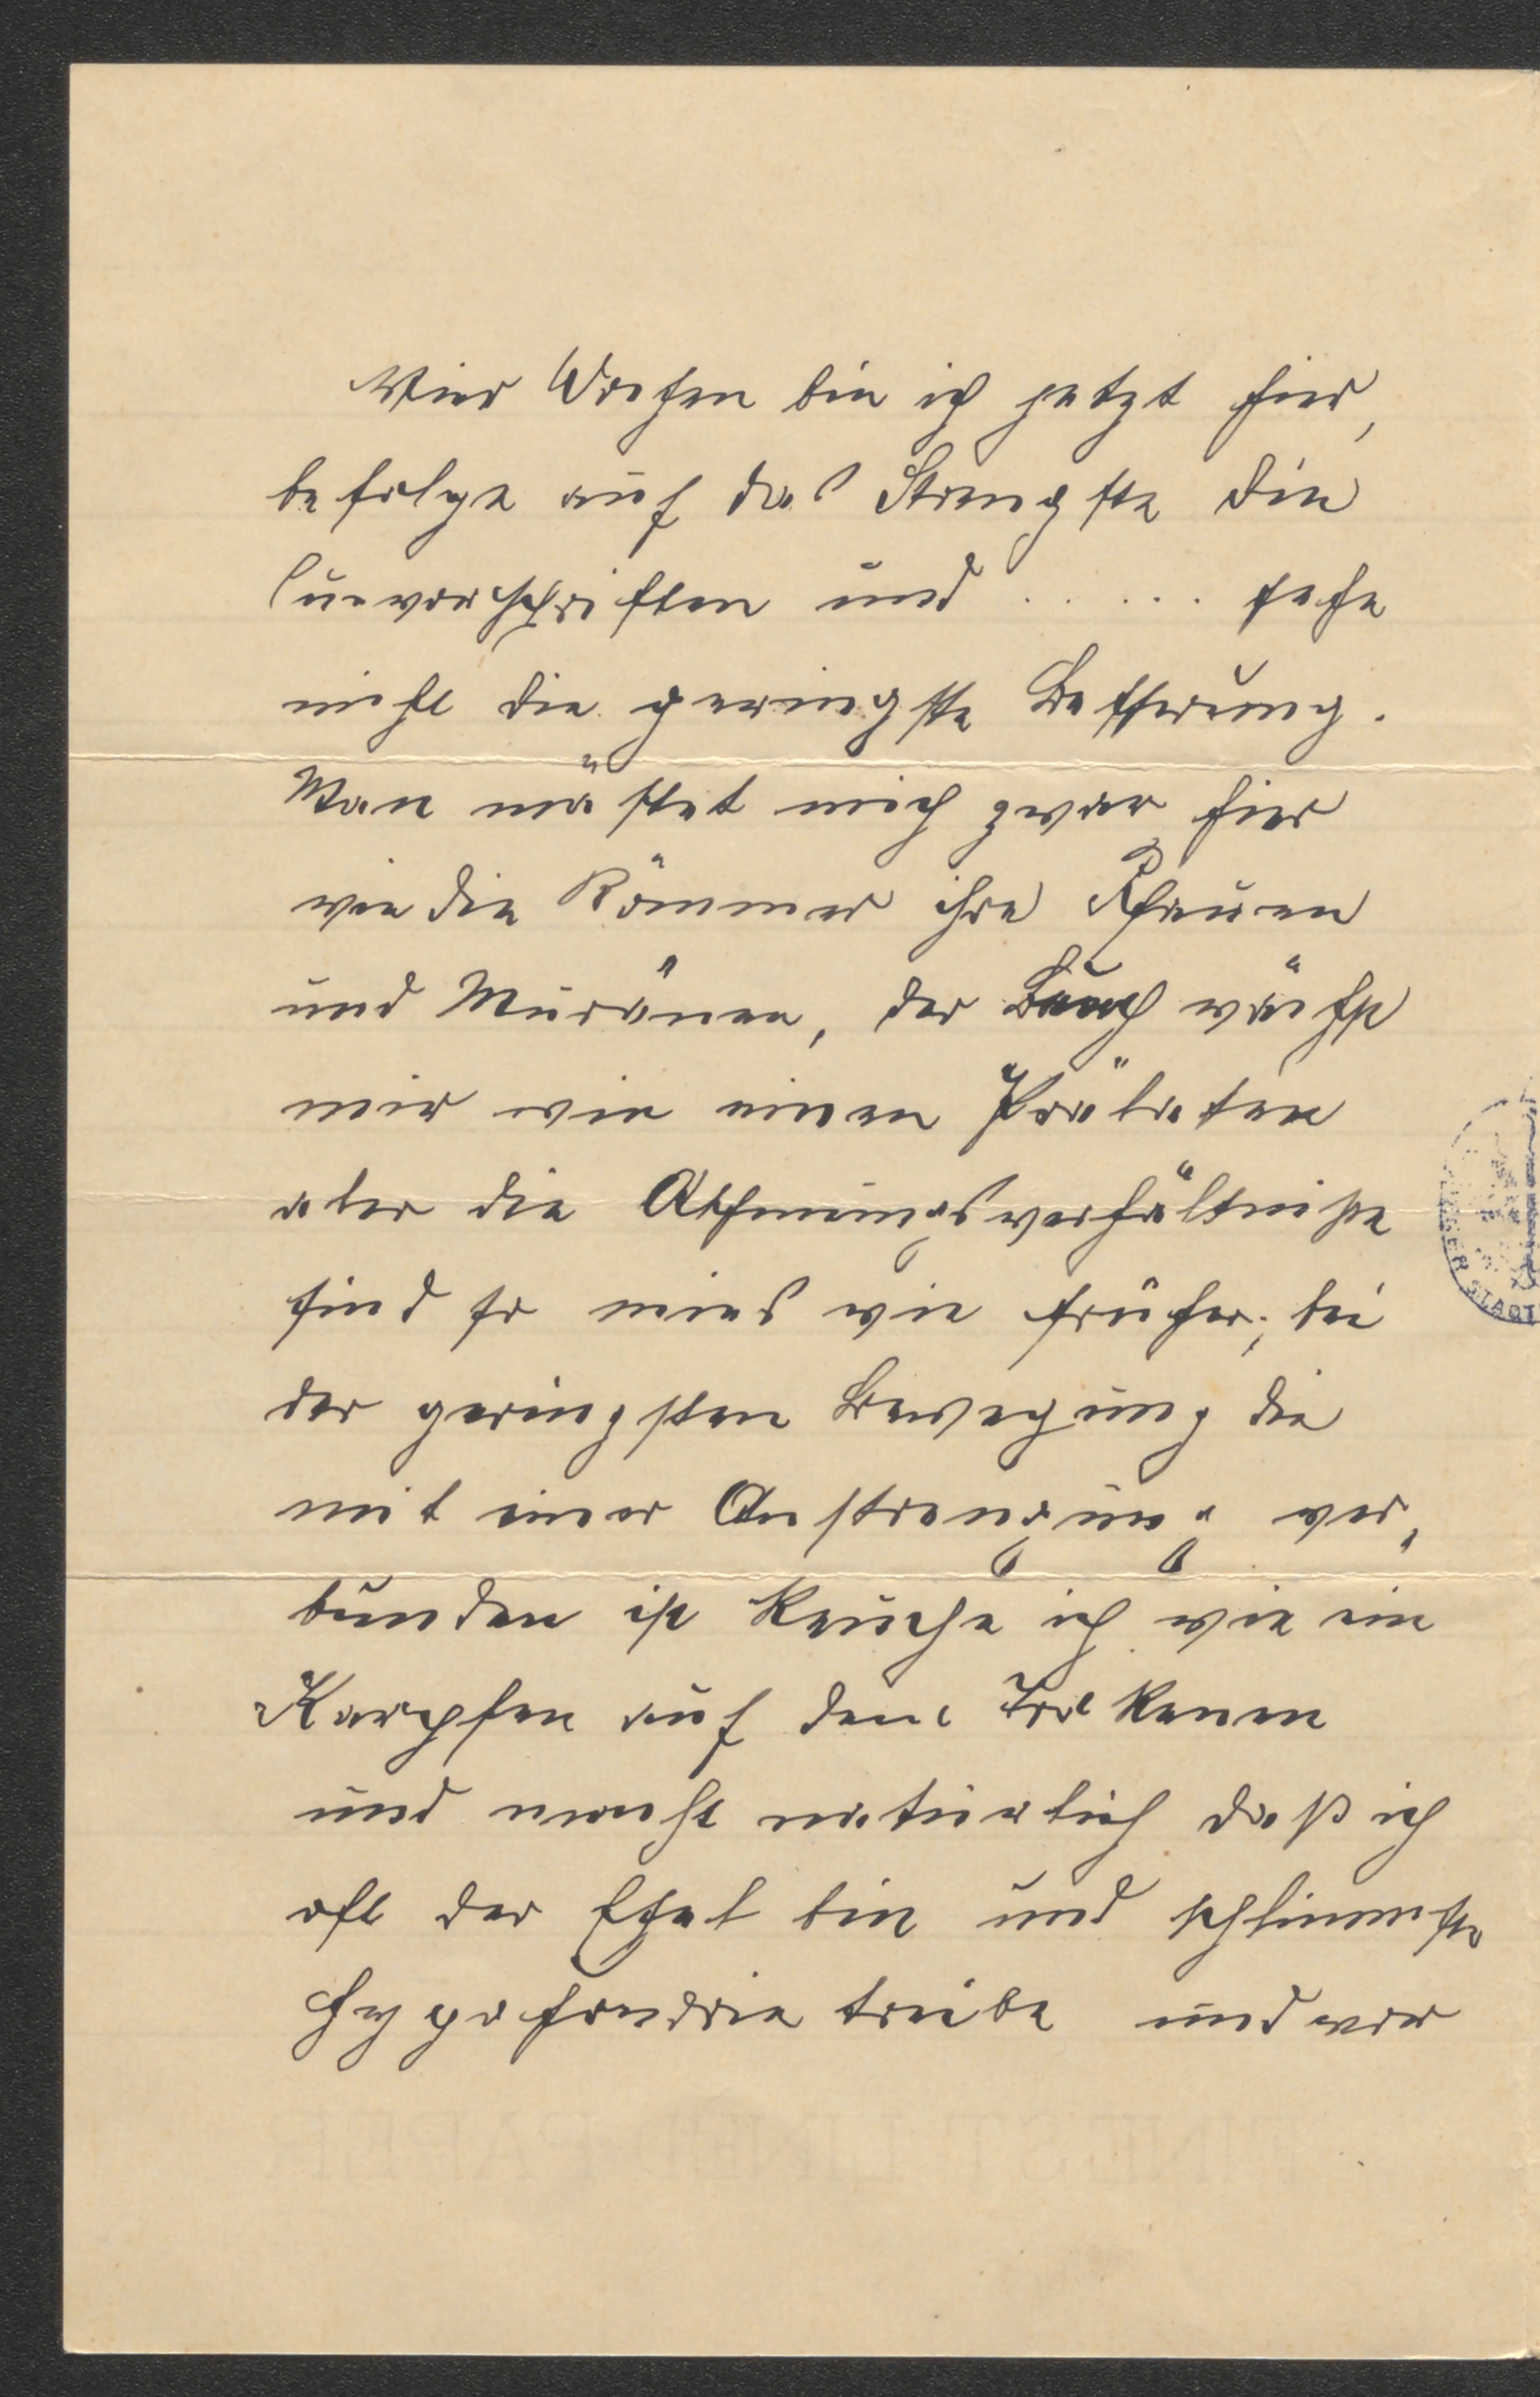 Vier Wochen bin ich jetzt hier,
befolge auf das Strengste die
Curvorschriften und ..... sehe
nicht die geringste Besserung.
Man mästet mich zwar hier
wie die Römmer ihre Pfauen
und Muränen, der Bauch wächst
mir wie einen Prälaten
aber die Athmungsverhältnisse
sind so mies wie früher; bei
der geringsten Bewegung die
mit einer Anstrengung ver„
bunden ist keuche ich wie ein
Karpfen auf dem Trokenen
und macht natürlich daß ich
oft der Esel bin und schlimmste
Hypohondrie treibe und vor